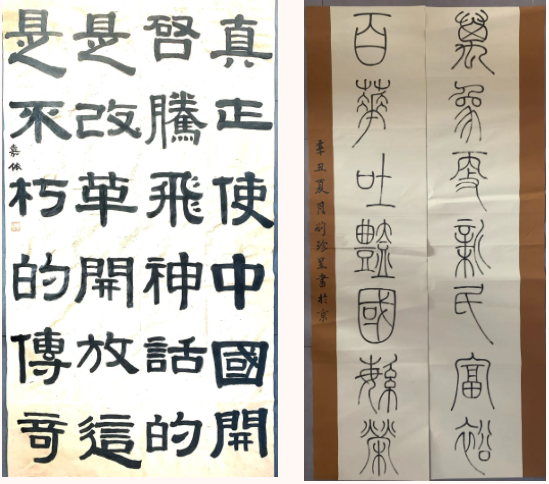 真正使中國開
啓騰飛神話的
是改革開放這
是不朽的傳竒
嘉依
萬象更新民富裕
百華吐豔國繁榮
辛丑夏月珍書於京